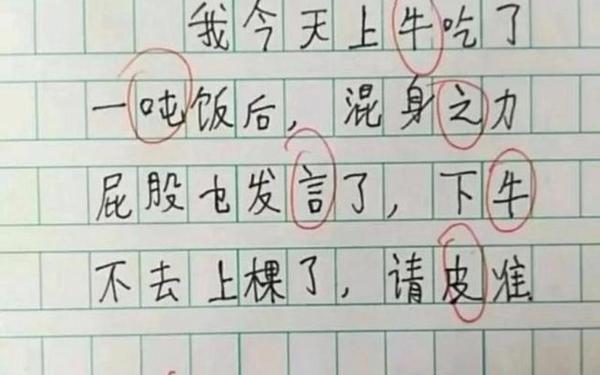 我今天上牛吃了
一吨饭后，混身之力
屁股也发言了，下牛
不去上棵了，请皮准